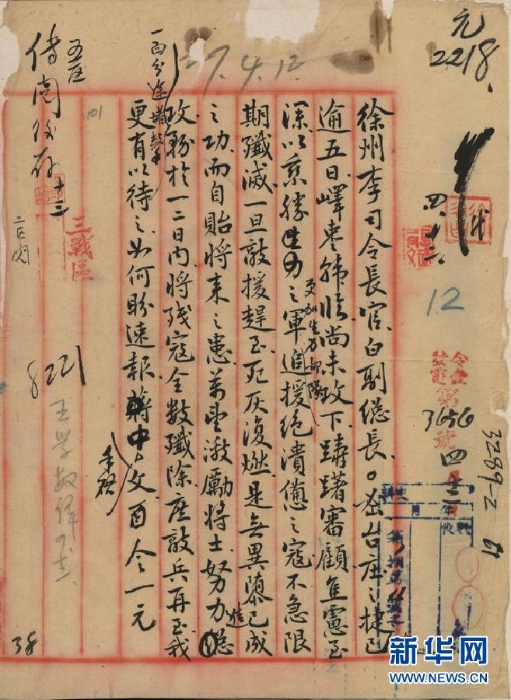 元
2218.
27.4.12.
四.十二
12
3656
四
3289-2
徐州李司令長官白副總長。密台庄之捷已
逾五日嶧枣韩临尚未攻下躊躇審顧焦慮至
深以乘勝生力之軍追援絕潰憊之寇不急限
更加生力部隊
期殲滅一旦敵援趕至死灰復燃是無異隳已成
之功而自貽將來之患萬望激勵將士努力
進
攻務於一二日內將殘寇全數殲除庶敵兵再至我
更有以待之如何盼速報蔣中文酉令一元
手啟
101
三戰區
傳閱後存
十三
8221
38
新华网
WWW.NEWS.CN